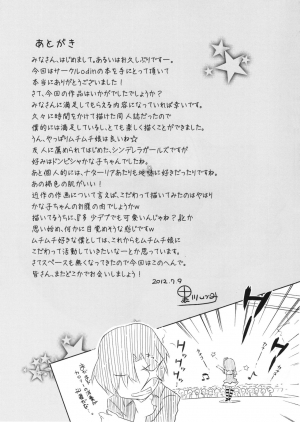 あとがき
みなさん、はじめまして。あるいはお久しぶりですー。
今回はサークルodinの本を手にとって頂いて
本当にありがとうございます！
さて、今回の作品はいかがでしたでしょうか？
みなさんに満足してもらえる内容になっていれば幸いです。
久々に時間をかけて描けた同人誌だったので
僕的には満足しているし、とても楽しく描くことができました。
うん、やっぱりムチムチ娘は良いね☆
友人に薦められてはじめた、シンデレラガールズですが
好みはドンピシャかな子ちゃんでしたね。
あと個人的には、ナターリアあたりも地味に好きだったりですね。
あの褐色の肌がいい！
近作の作画について言えば、こだわって描いてみたのはやはり
かな子ちゃんのお腹の肉でしょうかw
描いてるうちに、『多少デブでも可愛いんじゃね？』とか
思い始め、何かに目覚めそうな感じですw
ムチムチ好きな僕としては、これからもムチムチ娘に
こだわって活動していきたいなーとか思っています。
さてスペースも無くなってきたので今回はこのへんで。
皆さん、またどこかでお会いしましょう！
2012.7.9